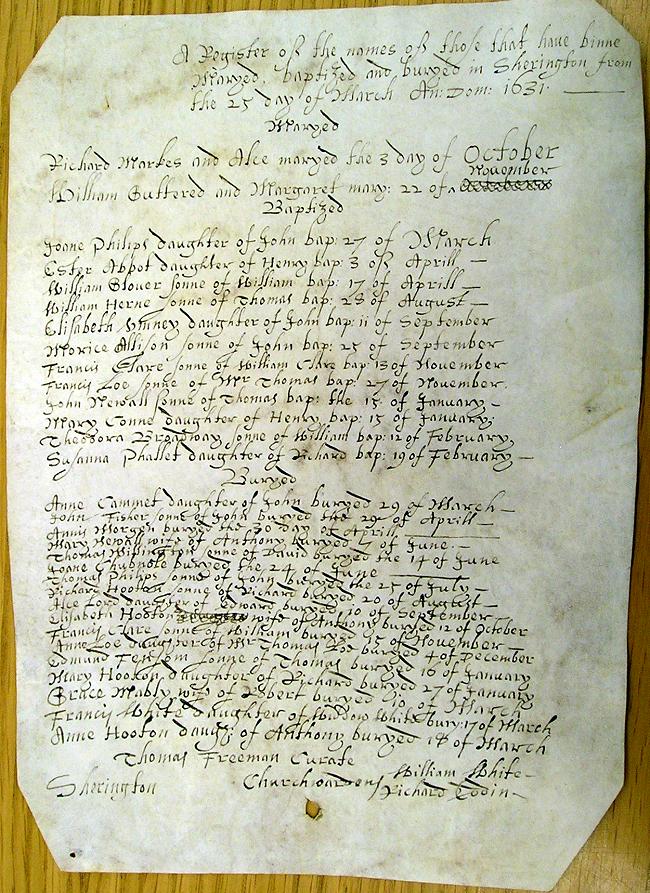 A Register off the names off those that have binne
Maryed, baptized and buryed in Sherington from
the 25 day of March An: Dom: 1631.
Maryed
Richard Markes and Alce maryed the 3 day of October
November
William Buttered and Margaret mary: 22 of
Baptized
Joane Philips daughter of John bap: 27 of March
Ester Abbot daughter of Henry bap: 3 off Aprill
William Glover sonne of William bap: 17 of Aprill
William Herne sonne of Thomas bap: 28 of August
Elisabeth daughter of John bap: 11 of September
Morice Allison sonne of John bap: 25 of September
Francis Clare sonne of William Clare bap 13 of November
Francis Loe sonne of Mr Thomas bap: 27 of November.
John Newall sonne of Thomas bap: the 15 of January
Mary Conne daughter of Henry bap: 15 of January;
Theodora Broadway sonne of William bap: 12 of February,
Susanna Phallet daughter of Richard bap: 19 of February
Buryed
Anne Cammet daughter of John buryed 29 of March
John Fisher sonne of John buryed the 29 of Aprill
Annis Morgen buryed the 30 day of Aprill
Mary Newall wife of Anthony buryed 7 of June
Thomas sonne of David buryed the 14 of June
Joane buryed the 24 of June
Thomas Philips sonne of John buryed the 25 of July
Richard Hooton sonne of Richard buryed 20 of August
Alce Lord daughter of Edward buryed 10 of September
Elisabeth Hooton wife of Anthony buryed 12 of October
Francis Clare sonne of William buryed 25 of November
Anne Loe daughter of Mr Thomas Loe buryed 4 of December
Edmund sonne of Thomas buryed 16 of January
Mary Hooton daughter of Richard buryed 27 of January
Grace Mably wife of Robert buryed 10 of March
Francis White daughter of Widdow White bury: 17 of March
Anne Hooton daugh: of Anthony buryed 18 of March
Thomas Freeman Curate
William White
Sherington Churchwardens Richard Codin